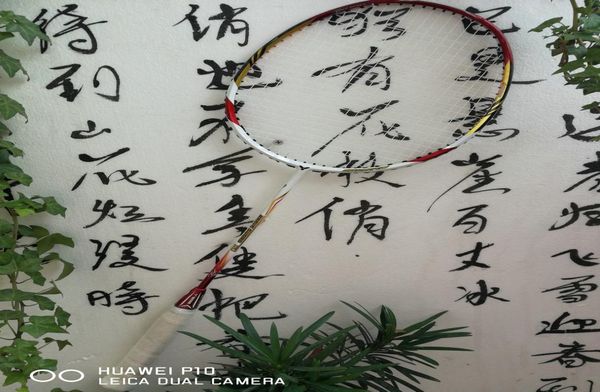 春归飞雪迎春到
已是悬崖百丈冰
犹有花枝俏
俏也不争春 把
待到山花烂漫時
HUAWEI P10
LEICA DUAL CAMERA